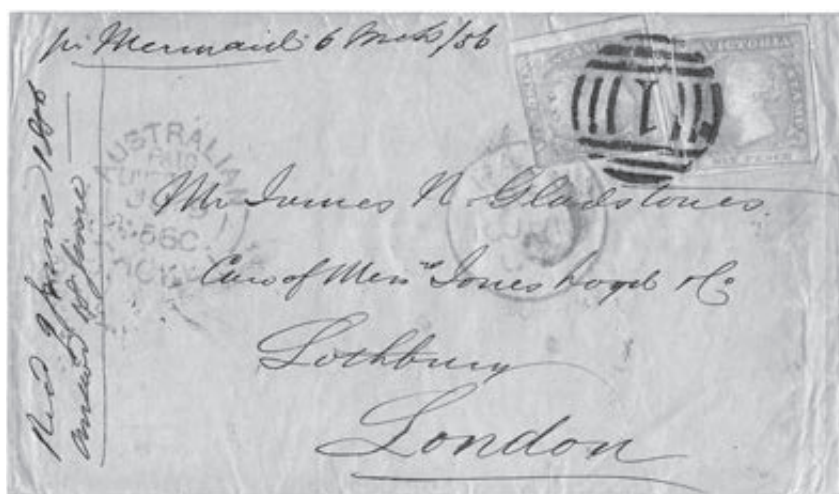 pr Mermaid 6 March/56
VICTORIA
STAMP
SIX PENCE
1
AUSTRALIAN
PACKET
Mr James N Gladstones
Care of Messrs Jones Loyd & Co
Lothbury
London
Recd 9 June 1856
answd 18 June